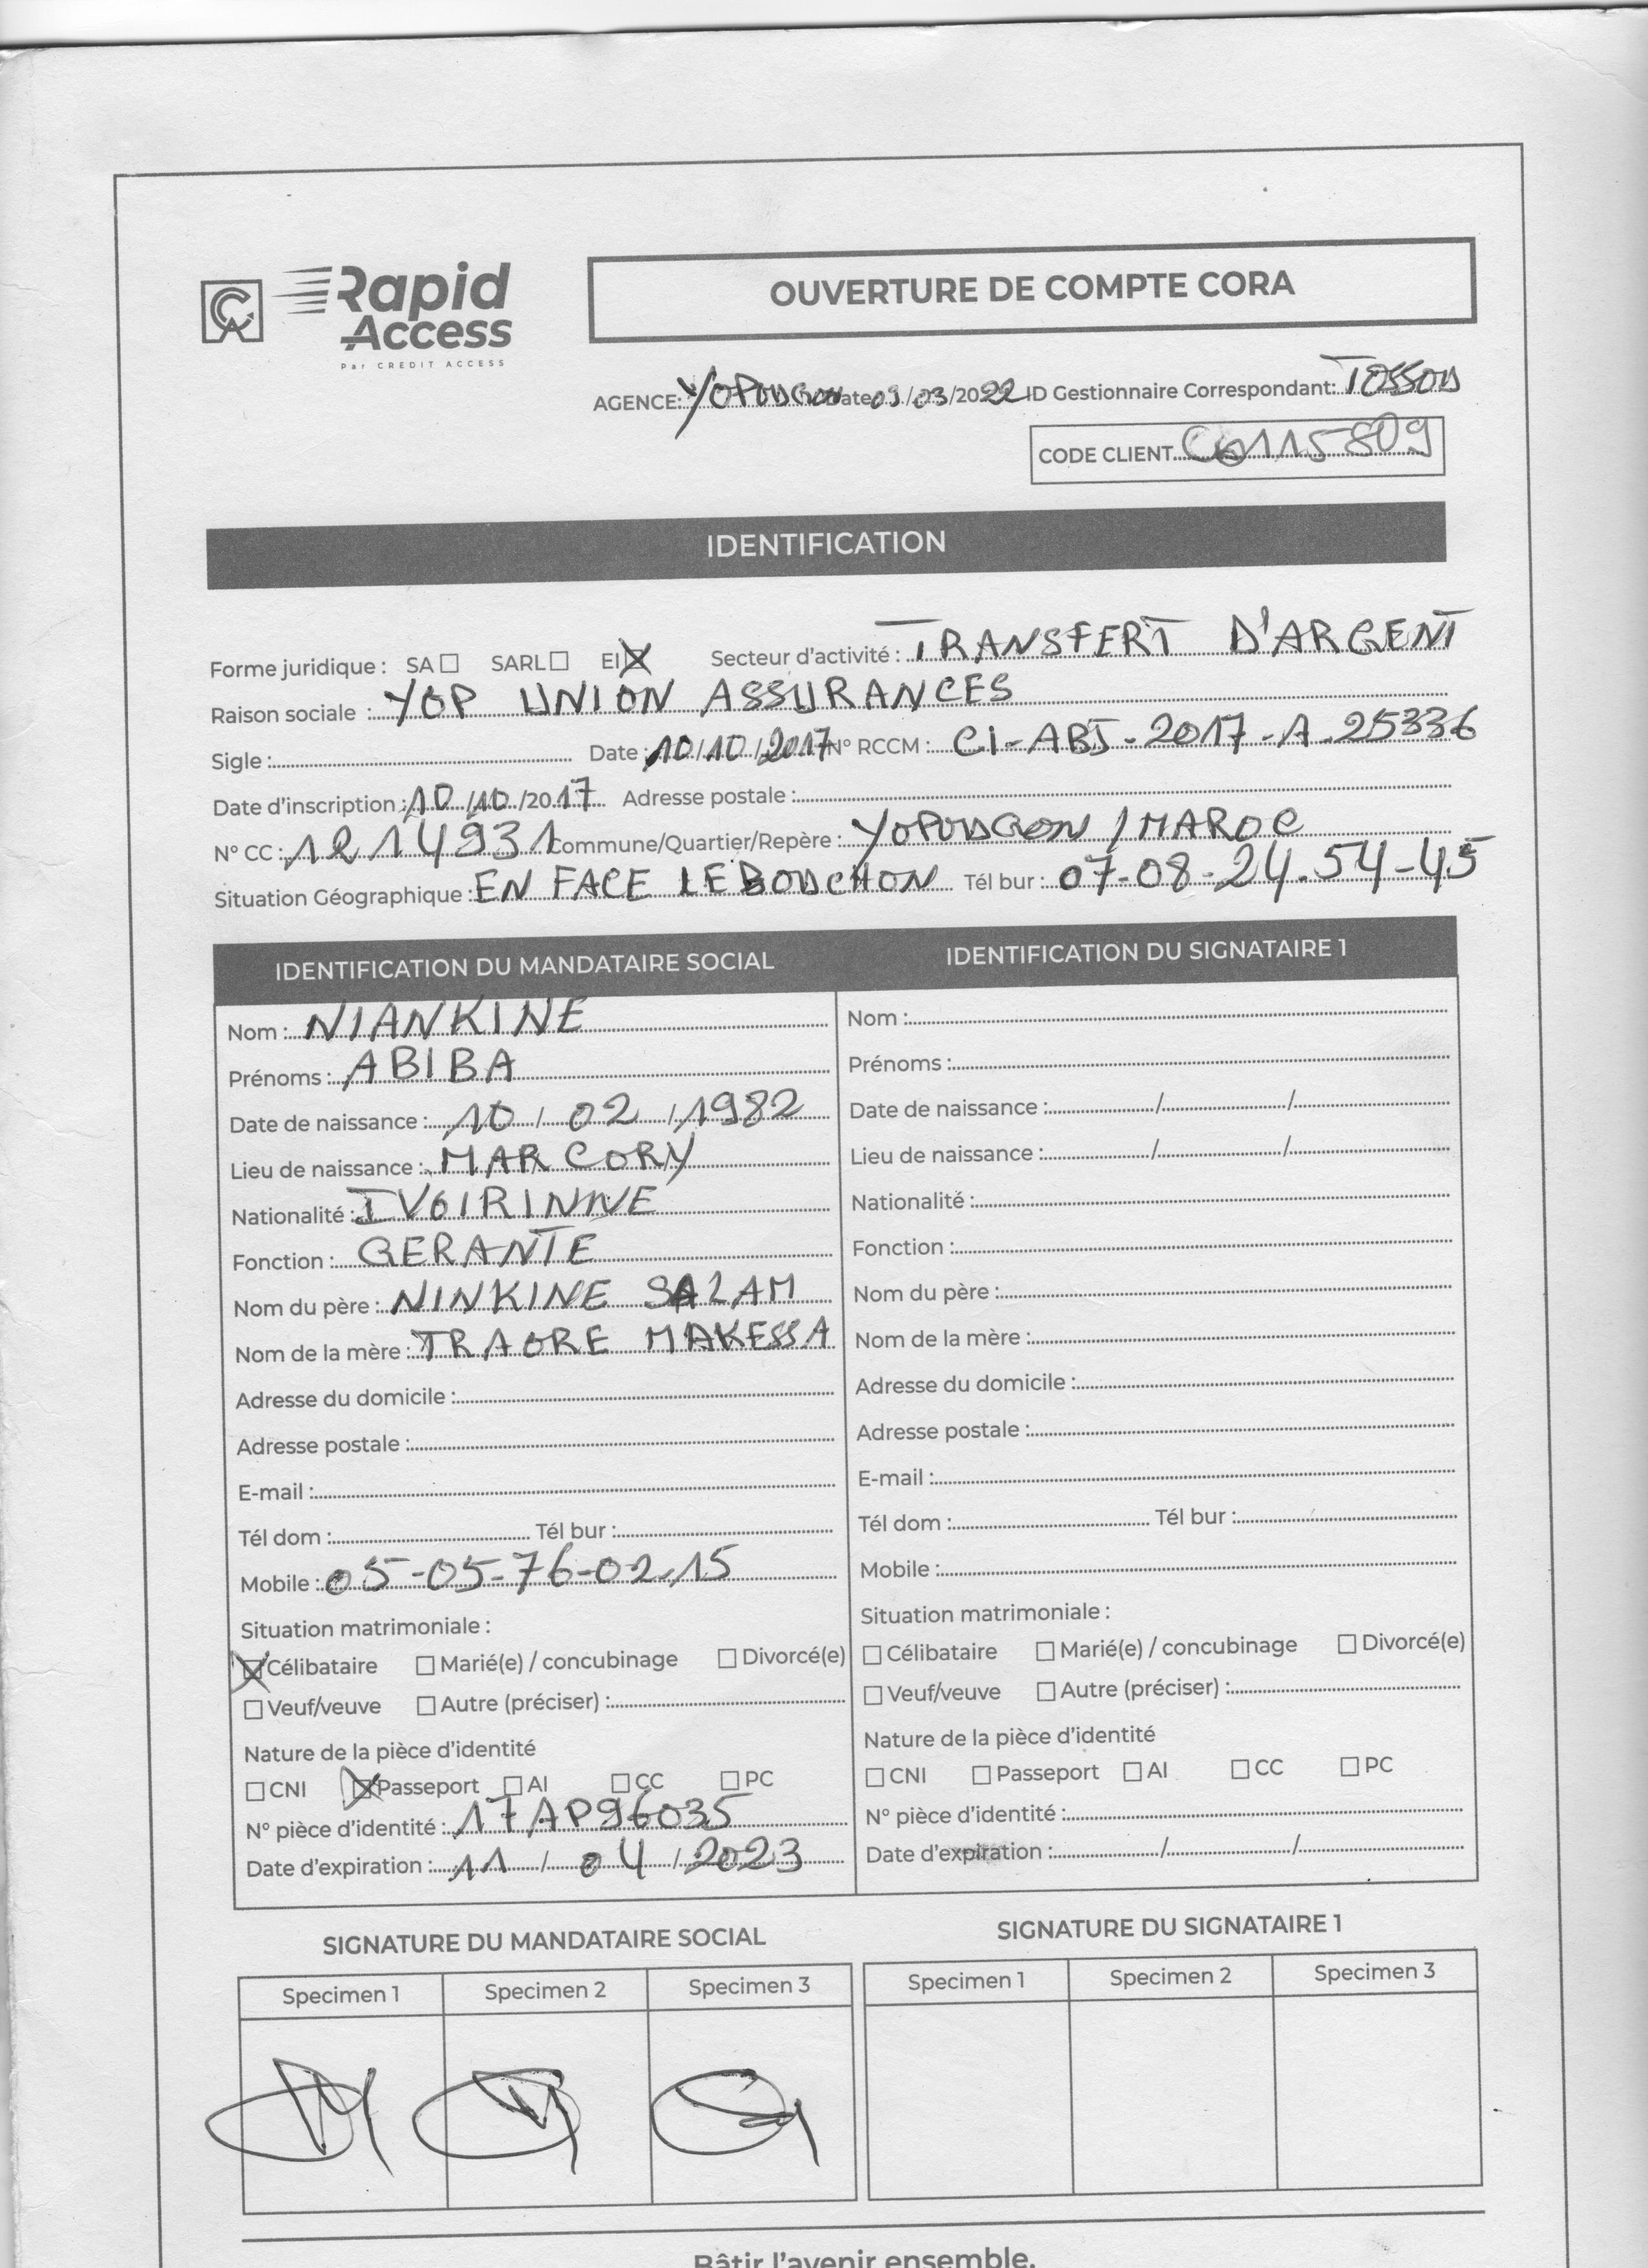 Rapid
Access
Par CREDIT ACCESS
OUVERTURE DE COMPTE CORA
AGENCE: YOPOUGON Date 09/03/2022 ID Gestionnaire Correspondant: TOSSOU
CODE CLIENT C6115809
IDENTIFICATION
Forme juridique : SA ☐ SARL ☐ EI ☒ Secteur d'activité : TRANSFERT D'ARGENT
Raison sociale : YOP UNION ASSURANCES
Sigle : Date : 10/10/2017 N° RCCM : CI-ABJ-2017-A-25336
Date d'inscription : 10/10/2017 Adresse postale :
N° CC : 1214931 Commune/Quartier/Repère : YOPOUGON / MAROC
Situation Géographique : EN FACE LE BOUCHON Tél bur : 07-08-24.54-45
IDENTIFICATION DU MANDATAIRE SOCIAL
Nom : NIANKINE
Prénoms : ABIBA
Date de naissance : 10 / 02 / 1982
Lieu de naissance : MARCORY
Nationalité : IVOIRINNE
Fonction : GERANTE
Nom du père : NINKINE SALAM
Nom de la mère : TRAORE MAKESSA
Adresse du domicile :
Adresse postale :
E-mail :
Tél dom : Tél bur :
Mobile : 05-05-76-02.15
Situation matrimoniale :
☒ Célibataire ☐ Marié(e) / concubinage ☐ Divorcé(e)
☐ Veuf/veuve ☐ Autre (préciser) :
Nature de la pièce d'identité
☐ CNI ☒ Passeport ☐ AI ☐ CC ☐ PC
N° pièce d'identité : 17AP96035
Date d'expiration : 11 / 04 / 2023
IDENTIFICATION DU SIGNATAIRE 1
Nom :
Prénoms :
Date de naissance : / /
Lieu de naissance : / /
Nationalité :
Fonction :
Nom du père :
Nom de la mère :
Adresse du domicile :
Adresse postale :
E-mail :
Tél dom : Tél bur :
Mobile :
Situation matrimoniale :
☐ Célibataire ☐ Marié(e) / concubinage ☐ Divorcé(e)
☐ Veuf/veuve ☐ Autre (préciser) :
Nature de la pièce d'identité
☐ CNI ☐ Passeport ☐ AI ☐ CC ☐ PC
N° pièce d'identité :
Date d'expiration : / /
SIGNATURE DU MANDATAIRE SOCIAL
Specimen 1 Specimen 2 Specimen 3
SIGNATURE DU SIGNATAIRE 1
Specimen 1 Specimen 2 Specimen 3
Bâtir l'avenir ensemble.